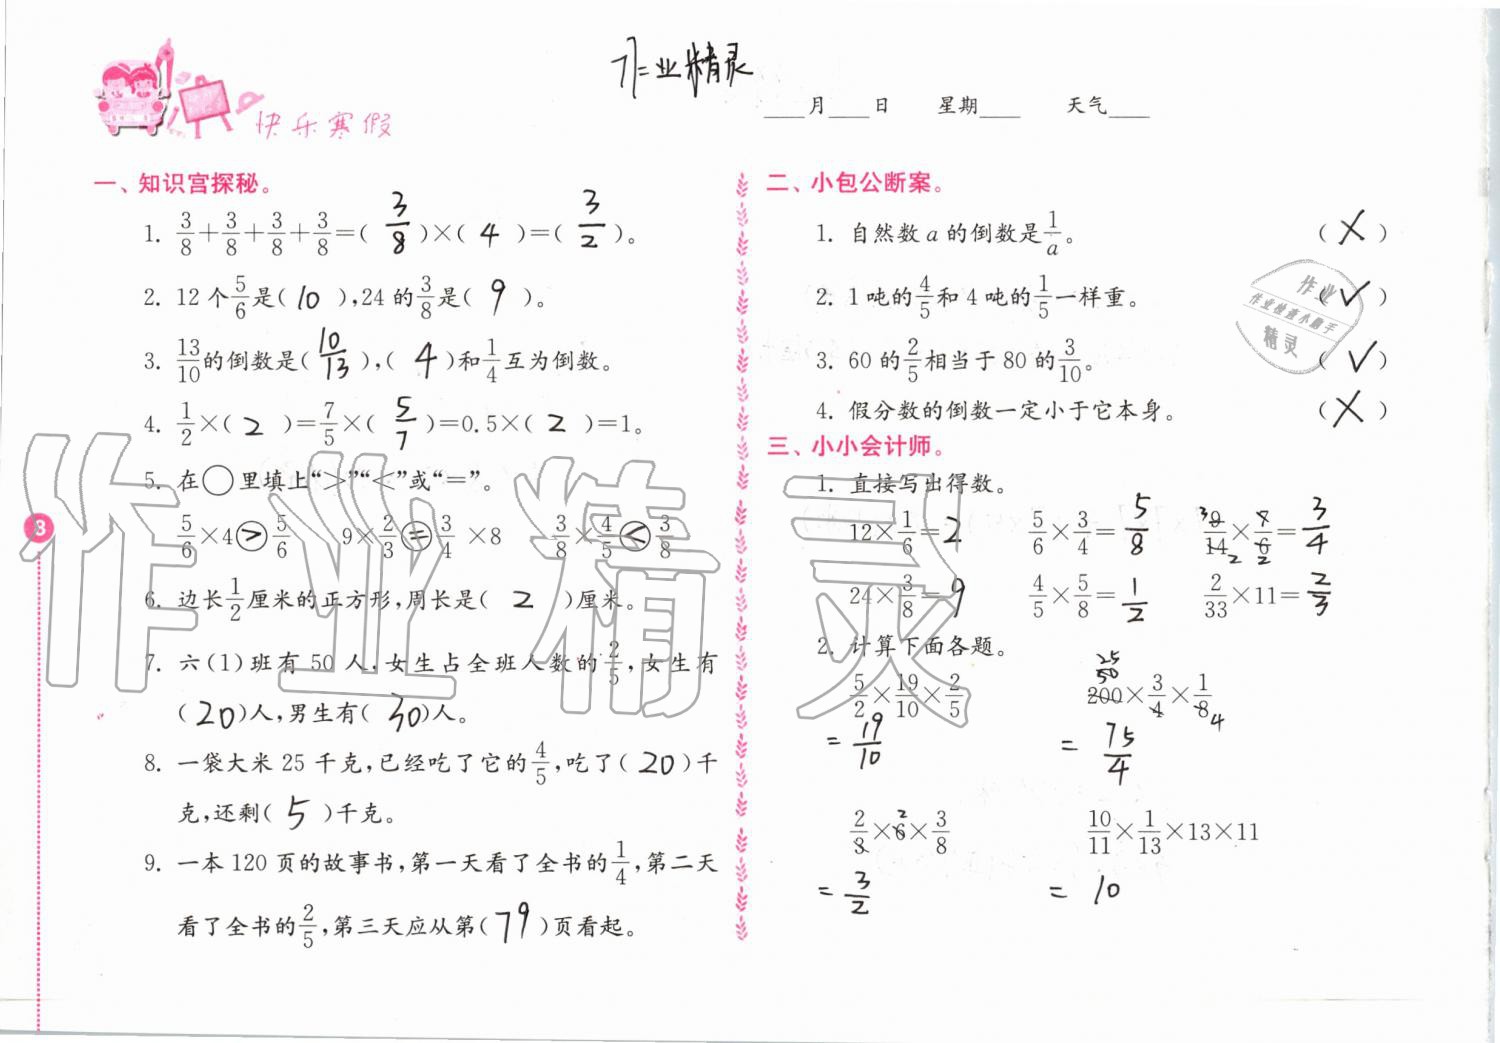 作业精灵
快乐寒假
____月____日 星期____ 天气____
一、知识宫探秘。
1. 3/8+3/8+3/8+3/8=( 3/8 )×( 4 )=( 3/2 )。
2. 12个5/6是( 10 ),24的3/8是( 9 )。
3. 13/10的倒数是( 10/13 ),( 4 )和1/4互为倒数。
4. 1/2×( 2 )=7/5×( 5/7 )=0.5×( 2 )=1。
5. 在○里填上“>”“<”或“=”。
5/6×4>5/6 9×2/3=3/4×8 3/8×4/5<3/8
6. 边长1/2厘米的正方形,周长是( 2 )厘米。
7. 六(1)班有50人,女生占全班人数的2/5,女生有
(20)人,男生有(30)人。
8. 一袋大米25千克,已经吃了它的4/5,吃了(20)千
克,还剩( 5 )千克。
9. 一本120页的故事书,第一天看了全书的1/4,第二天
看了全书的2/5,第三天应从第( 79 )页看起。
3
二、小包公断案。
1. 自然数a的倒数是1/a。 (×)
2. 1吨的4/5和4吨的1/5一样重。 (✓)
3. 60的2/5相当于80的3/10。 (✓)
4. 假分数的倒数一定小于它本身。 (×)
三、小小会计师。
1. 直接写出得数。
12×1/6=2 5/6×3/4=5/8 9/14×7/6=3/4
3 2 2
24×3/8=9 4/5×5/8=1/2 2/33×11=2/3
2. 计算下面各题。
25
50
5/2×19/10×2/5 200×3/4×1/8
4
=19/10 =75/4
2
2/3×6×3/8 10/11×1/13×13×11
=3/2 =10
作业
作业检查小助手
精灵
作业精灵